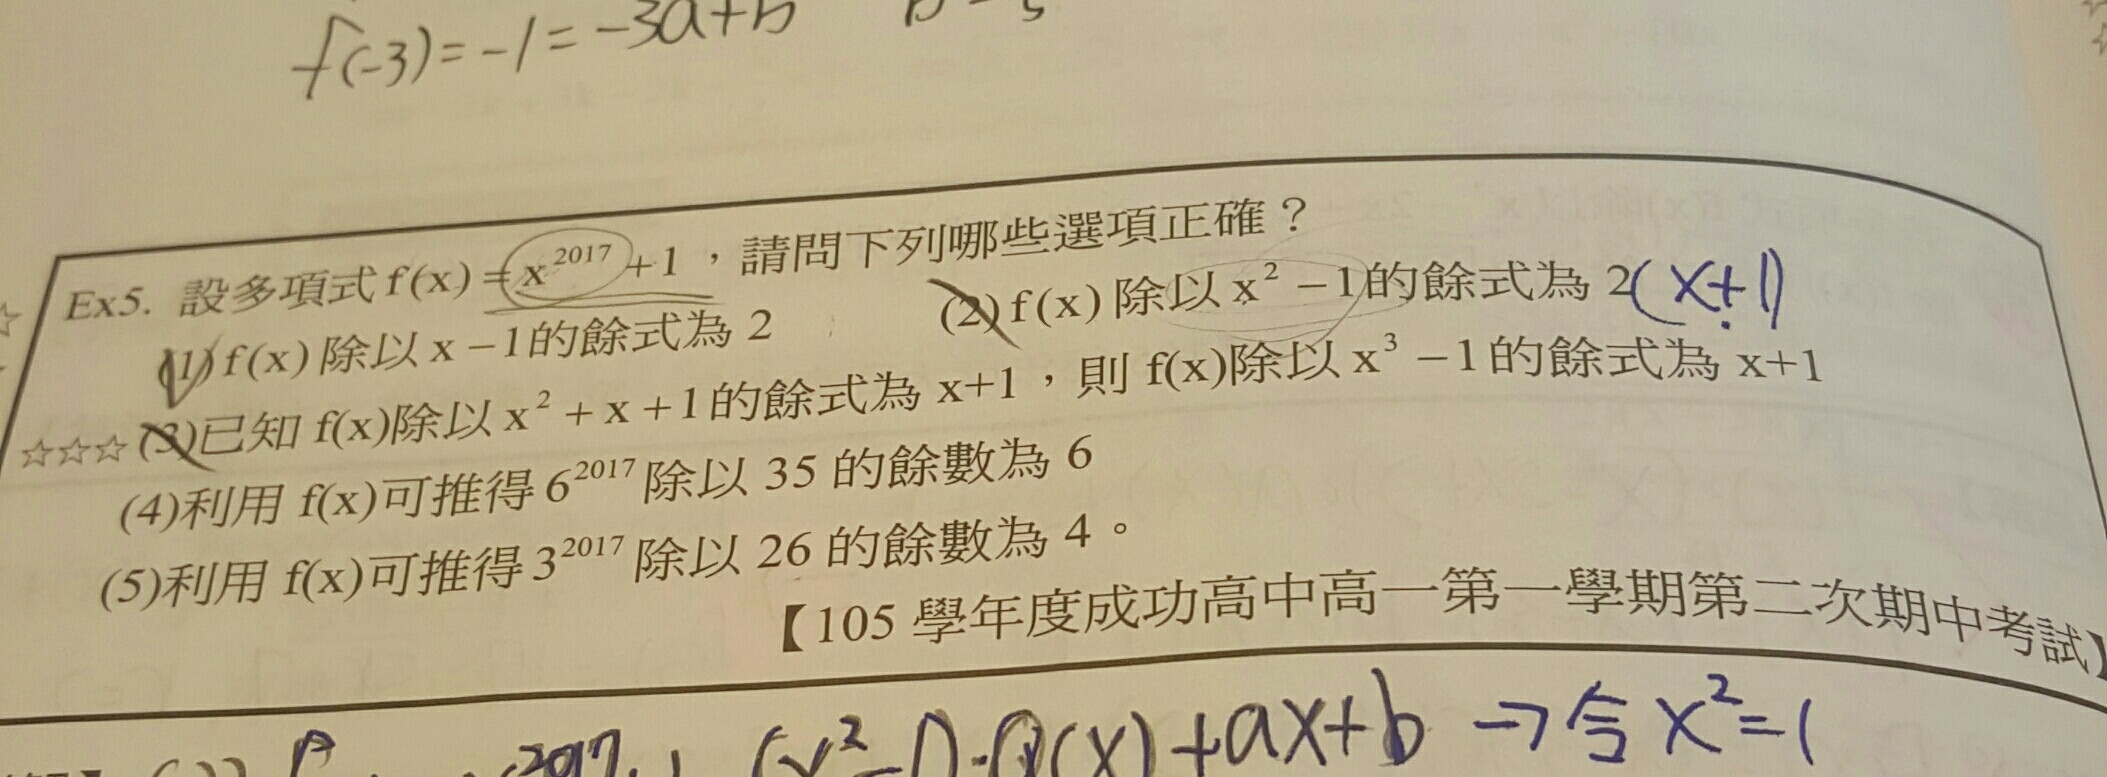 f(-3)=-1=-3a+b
Ex5. 設多項式 f(x)=x²⁰¹⁷+1，請問下列哪些選項正確？
(1) f(x) 除以 x－1的餘式為 2 (2) f(x) 除以 x²－1的餘式為 2(x+1)
☆☆☆(3)已知 f(x)除以 x²+x+1的餘式為 x+1，則 f(x)除以 x³－1的餘式為 x+1
(4)利用 f(x)可推得 6²⁰¹⁷ 除以 35 的餘數為 6
(5)利用 f(x)可推得 3²⁰¹⁷ 除以 26 的餘數為 4。
【105 學年度成功高中高一第一學期第二次期中考試】
2017 (x²-1)·Q(x)+ax+b → 令 x²=1